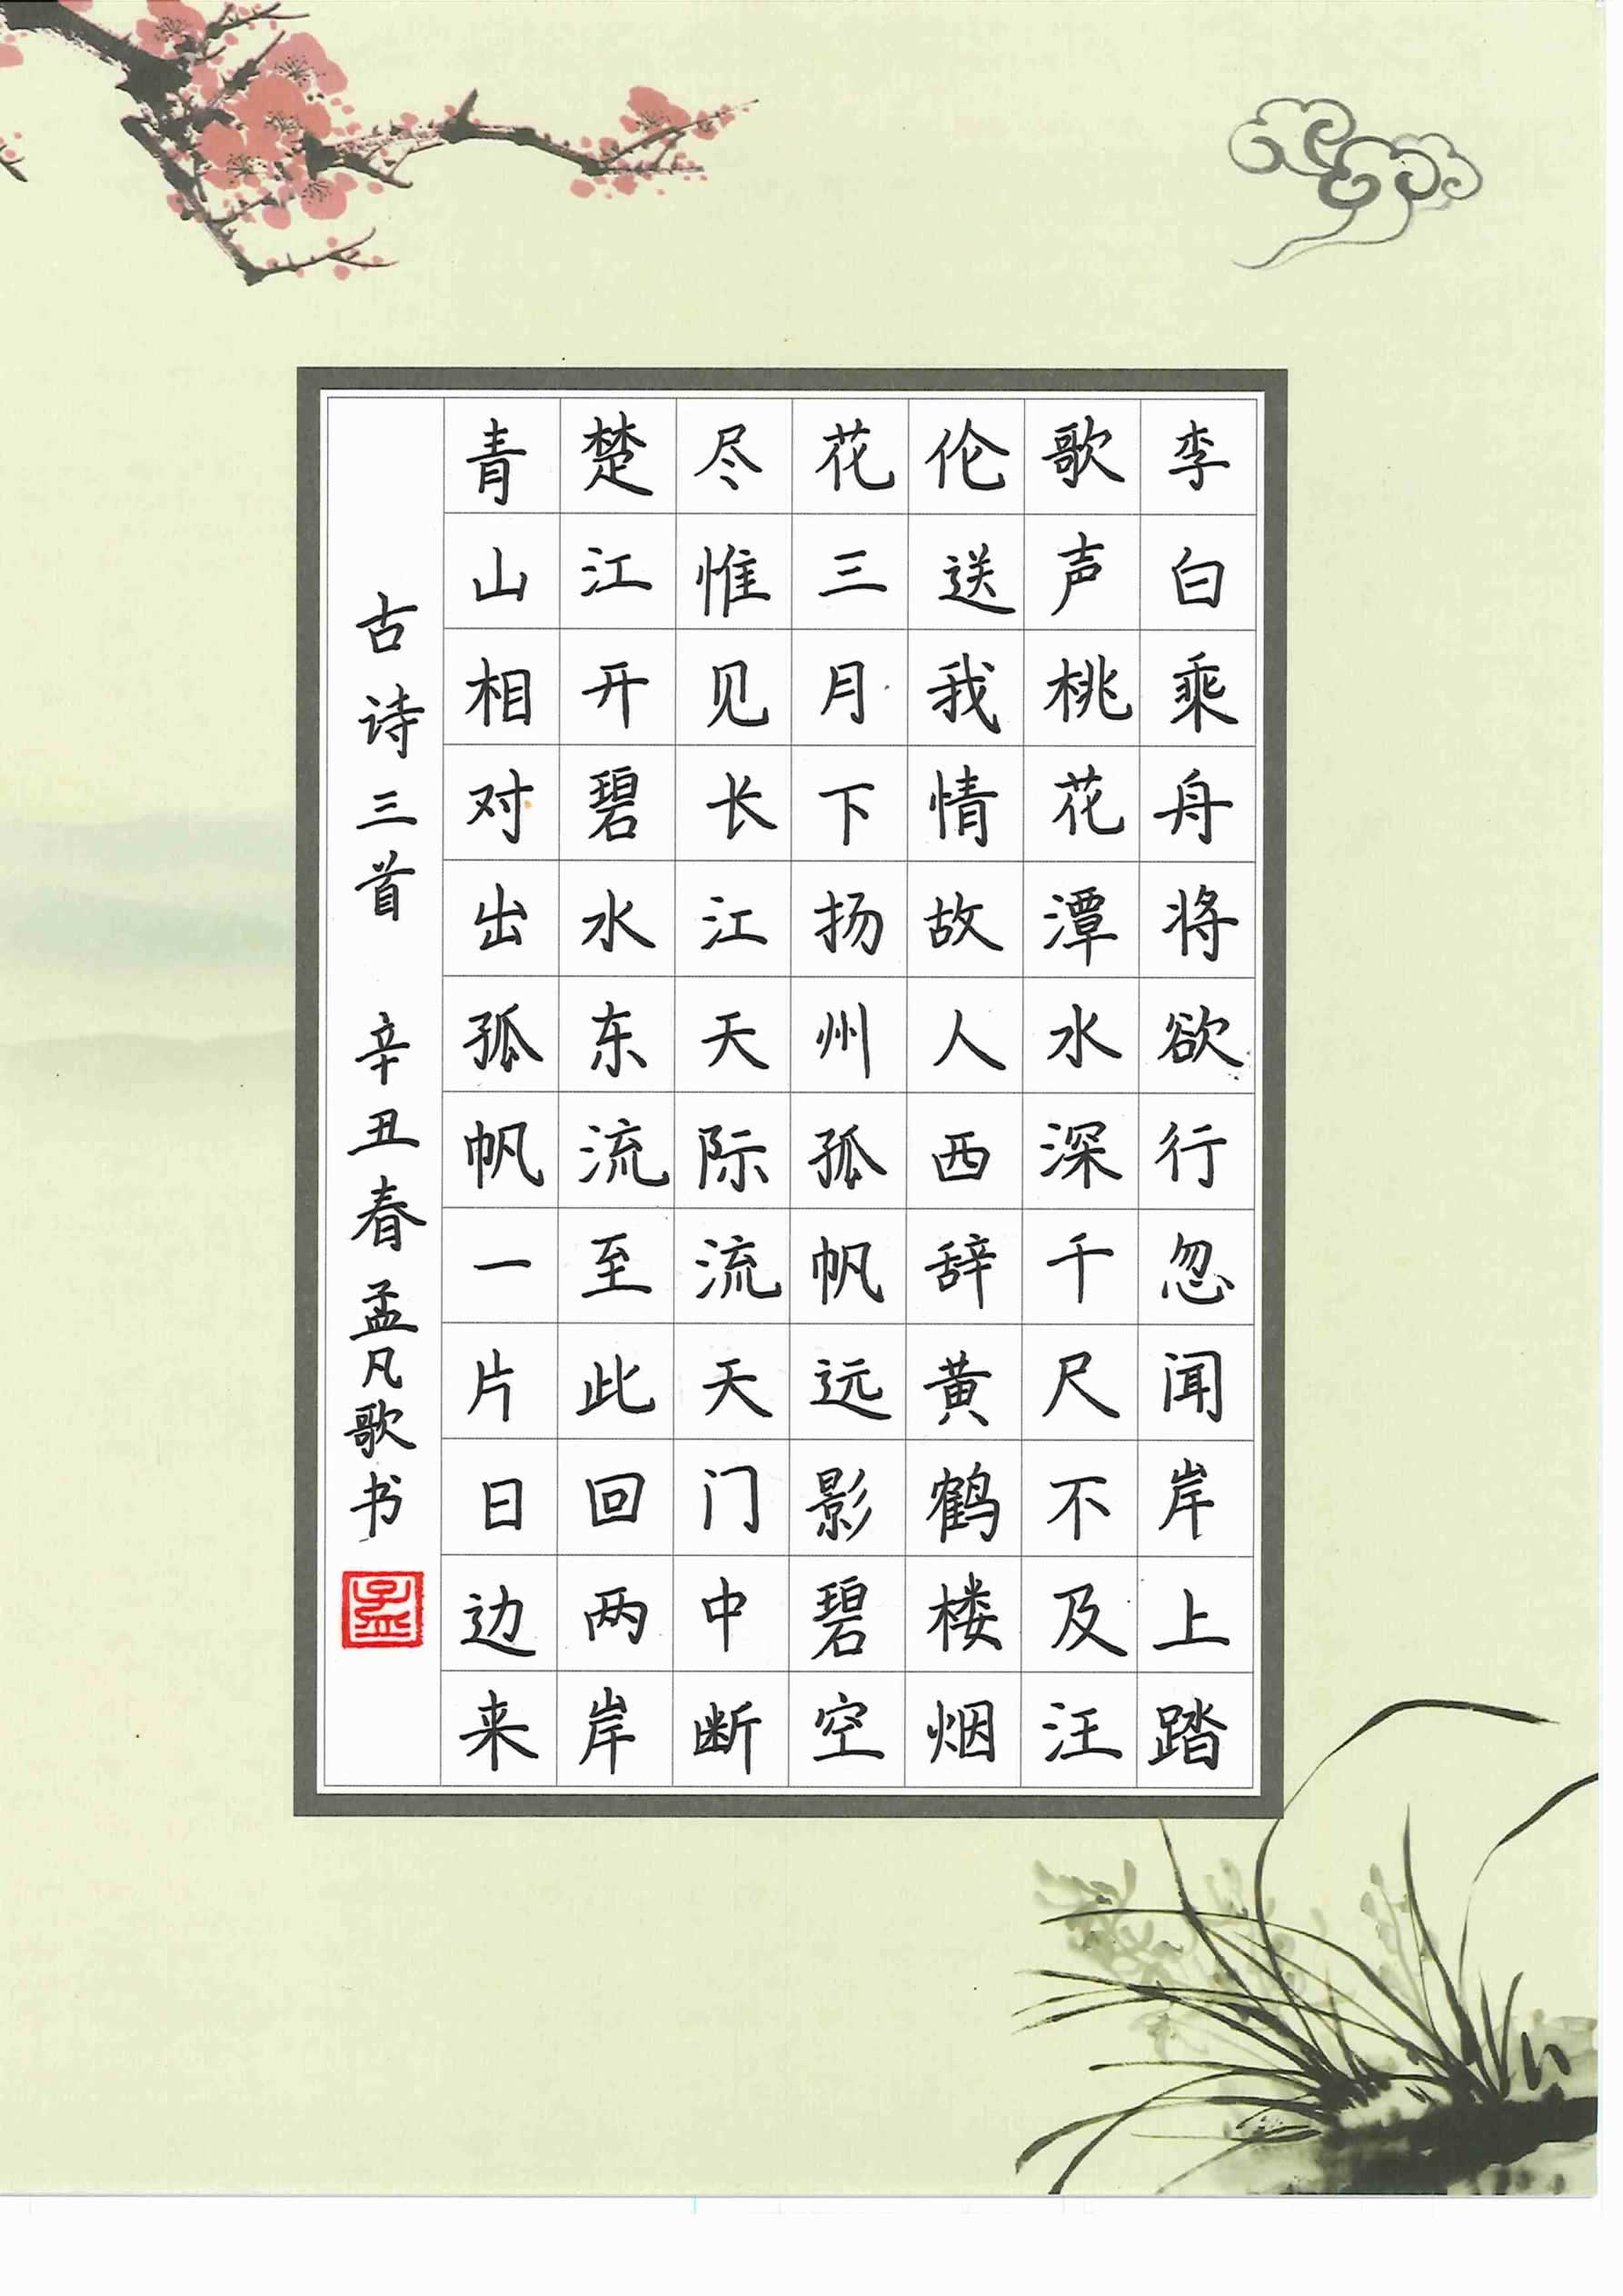 李白乘舟将欲行忽闻岸上踏
歌声桃花潭水深千尺不及汪
伦送我情故人西辞黄鹤楼烟
花三月下扬州孤帆远影碧空
尽惟见长江天际流天门中断
楚江开碧水东流至此回两岸
青山相对出孤帆一片日边来
古诗三首 辛丑春孟凡歌书
孟